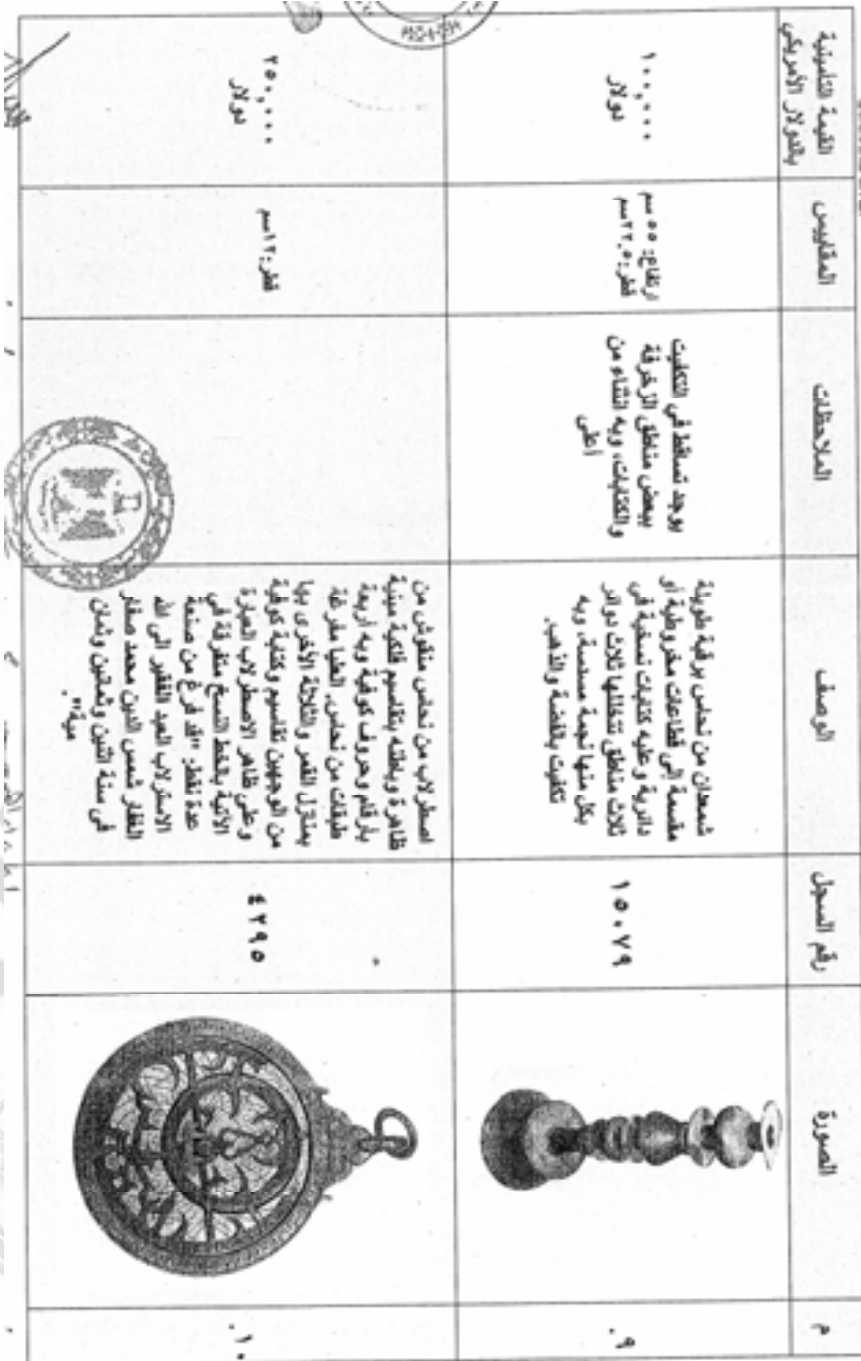 م
الصورة
رقم السجل
الوصف
الملاحظات
المقاييس
القيمة التأمينية
بالدولار الأمريكي
٩.
١٥٠٧٩
شمعدان من نحاس برقبة طويلة
مقسمة إلى قطاعات مخروطية أو
دائرية وعليه كتابات نسخية في
ثلاث مناطق تتخللها ثلاث دوائر
بكل منها نجمة مسدسة، وبه
تكفيت بالفضة والذهب.
يوجد تساقط في التكفيت
ببعض مناطق الزخرفة
والكتابات، وبه انثناء من
أعلى
ارتفاع: ٥٥ سم
قطر: ٢٢,٥سم
١٠٠,٠٠٠
دولار
١٠.
٤٢٩٥
اصطرلاب من نحاس منقوش من
ظاهرة وباطنه بتقاسيم فلكية مبنية
بأرقام وحروف كوفية وبه أربعة
طبقات من نحاس. العليا مفرغة
بمنازل القمر والثلاثة الأخرى بها
من الوجهين تقاسيم وكتابة كوفية
وعلى ظاهر الاصطرلاب العبارة
الآتية بالخط النسخ متفرقة في
عدة نقط: "قد فرغ من صنعة
الاسترلاب العبد الفقير الى الله
الغفار شمس الدين محمد صفار
في سنة اثنين وثمانين وثمان
مية".
قطر: ١٢سم
٢٥٠,٠٠٠
دولار